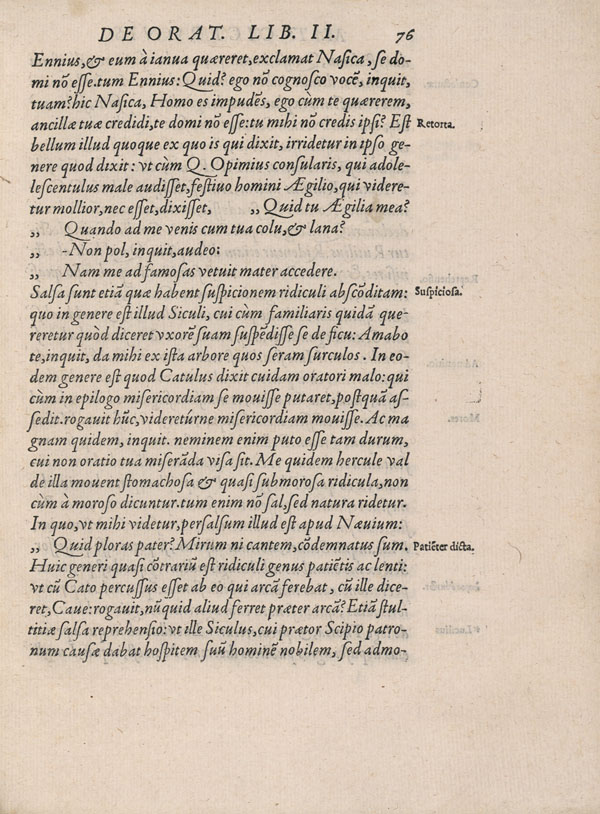 DE ORAT. LIB. II. 76
Ennius,& eum à ianua quæreret,exclamat Nasica, se do-
mi nõ esse.tum Ennius: Quid? ego nõ cognosco vocẽ, inquit,
tuam?hic Nasica, Homo es impudẽs, ego cùm te quærerem,
ancillæ tuæ credidi,te domi nõ esse:tu mihi nõ credis ipsi? Est Retorta.
bellum illud quoque ex quo is qui dixit, irridetur in ipso ge-
nere quod dixit: vt cùm Q. Opimius consularis, qui adole-
lescentulus male audisset,festiuo homini Ægilio,qui videre-
tur mollior,nec esset,dixisset, „ Quid tu Ægilia mea?
„ Quando ad me venis cum tua colu,& lana?
„ -Non pol, inquit,audeo:
„ Nam me ad famosas vetuit mater accedere.
Salsa sunt etiã quæ habent suspicionem ridiculi abscõditam: Suspiciosa.
quo in genere est illud Siculi, cui cùm familiaris quidã que-
reretur quòd diceret vxorẽ suam suspẽdisse se de ficu: Amabo
te,inquit, da mihi ex ista arbore quos seram surculos. In eo-
dem genere est quod Catulus dixit cuidam oratori malo: qui
cùm in epilogo misericordiam se mouisse putaret,postquã as-
sedit.rogauit hũc,videretúrne misericordiam mouisse. Ac ma
gnam quidem, inquit. neminem enim puto esse tam durum,
cui non oratio tua miserãda visa sit. Me quidem hercule val
de illa mouent stomachosa & quasi submorosa ridicula,non
cùm à moroso dicuntur.tum enim nõ sal,sed natura ridetur.
In quo,vt mihi videtur,persalsum illud est apud Næuium:
„ Quid ploras pater? Mirum ni cantem,cõdemnatus sum. Patiẽter dicta.
Huic generi quasi cõtrariũ est ridiculi genus patiẽtis ac lenti:
vt cũ Cato percussus esset ab eo qui arcã ferebat, cũ ille dice-
ret,Caue:rogauit,nũquid aliud ferret præter arcã? Etiã stul-
titiæ salsa reprehensio: vt ille Siculus,cui prætor Scipio patro-
num causæ dabat hospitem suũ hominẽ nobilem, sed admo-